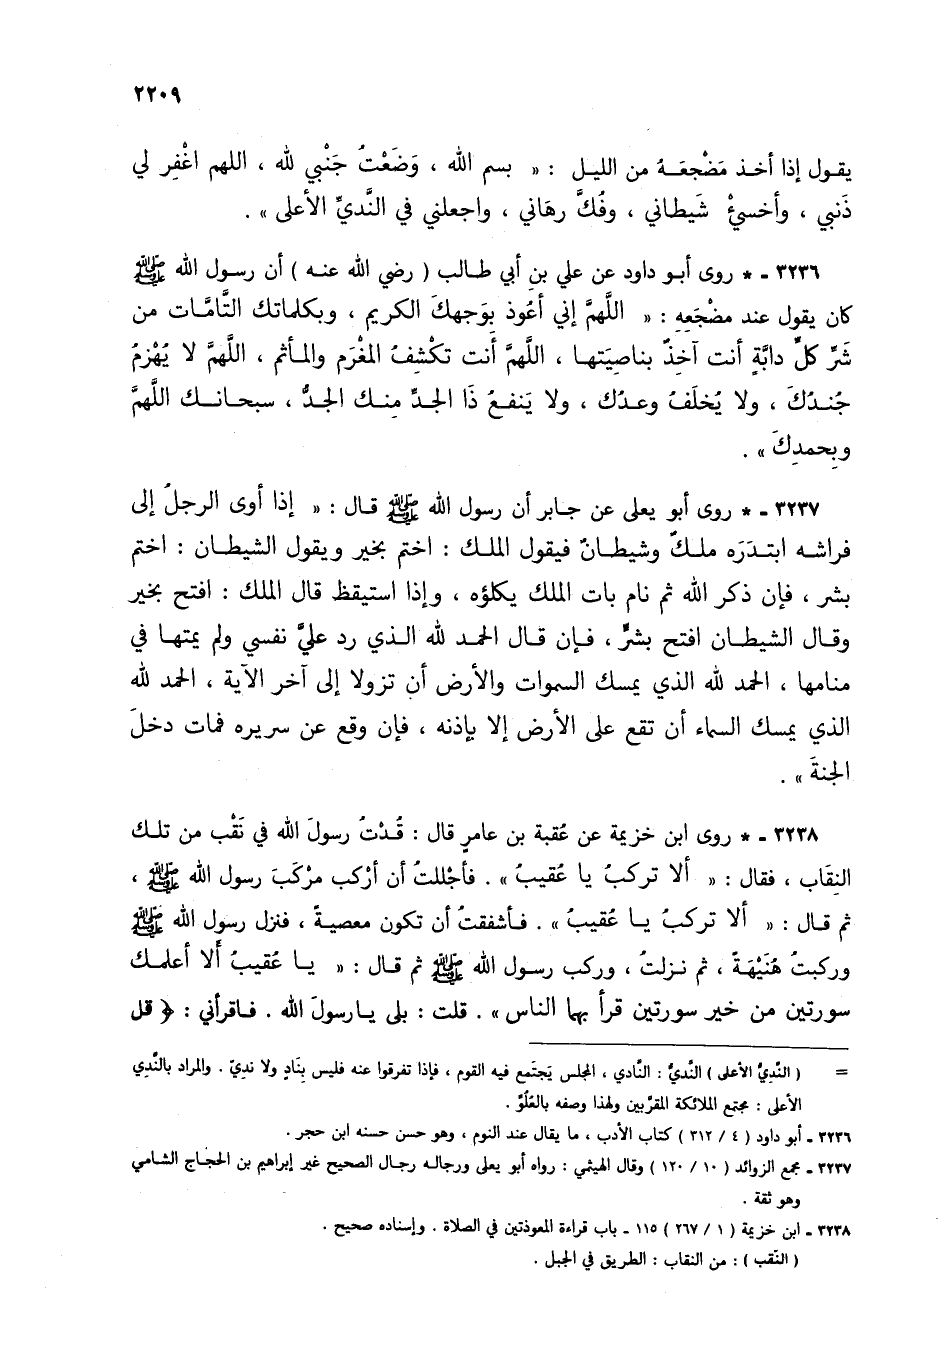 ٢٢٠٩
يقـول إذا أخـذ مَضْجعَـهُ من الليـل : « بسم الله ، وَضَعْتُ جَنْبي لله ، اللهم اغْفِر لي
ذَنبي ، وأخسئْ شَيطاني ، وفُكَّ رهَاني ، واجعلني في النَّديِّ الأعلى » .
٣٢٣٦ ـ * روى أبـو داود عن علي بنِ أبي طـالب ( رضي الله عنـه ) أن رسـول الله ﷺ
كان يقول عند مضْجَعِهِ : « اللهمَّ إني أعُوذ بِوَجهكَ الكريم ، وبكلماتك التَّامَّات من
شَرِّ كلِّ دابَّةٍ أنت آخِذٌ بناصِيَتهـا ، اللهمَّ أنت تكْشِفُ المغْرَم والمـأثم ، اللهمَّ لا يُهْزمُ
جُنـدُكَ ، ولا يُخلَفُ وعـدُك ، ولا يَنفـعُ ذَا الجـدِّ منـك الجـدُّ ، سبحـانـك اللهمَّ
وبِحمدِكَ » .
٣٢٣٧ ـ * روى أبو يعلى عن جـابر أن رسول الله ﷺ قـال : « إذا أوى الرجلُ إلى
فراشـه ابتـدَرَه ملـكٌ وشيطـانٌ فيقول الملـك : اختم بخير ويقول الشيطـان : اختم
بشر ، فإن ذكر الله ثم نام بات الملك يكلؤه ، وإذا استيقظ قال الملك : افتح بخير
وقـال الشيطـان افتح بشرٍّ ، فـإن قـال الحمـد لله الـذي رد عليَّ نفسي ولم يمتهـا في
منامها ، الحمد لله الذي يمسك السموات والأرض أن تزولا إلى آخر الآية ، الحمد لله
الذي يمسك السماء أن تقع على الأرض إلا بإذنه ، فإن وقع عن سريره فمات دخلَ
الجنةَ » .
٣٢٣٨ ـ * روى ابن خزيمة عن عُقبة بن عامرٍ قال : قُدْتُ رسولَ الله في نَقْب من تلـك
النِقَاب ، فقال : « ألا تركبُ يا عُقيبُ » . فأجْللتُ أن أرْكب مرْكَبَ رسول الله ﷺ ،
ثم قـال : « ألا تركبُ يـا عُقيبُ » . فـأشفقتُ أن تكون معصيـةً ، فنزل رسول الله ﷺ
وركبتُ هُنَيْهَةً ، ثم نـزلتُ ، وركب رسـول الله ﷺ ثم قـال : « يـا عُقيبُ ألا أعلمـك
سورتين من خير سورتين قرأ بهما الناس » . قلت : بلى يـارسولَ الله . فـاقرأني : ﴿ قل
= ( النَّدِيُّ الأعلى ) النَّديُّ : النَّادي ، المجلس يَجتَمع فيه القوم ، فإذا تفرقوا عنه فليس بِنَادٍ ولا نديّ . والمراد بالنَّدِي
الأعلى : مجتمع الملائكة المقرَّبين ولهذا وصفه بالعُلُوِّ .
٣٢٣٦ ـ أبو داود ( ٤ / ٣١٢ ) كتاب الأدب ، ما يقال عند النوم ، وهو حسن حسنه ابن حجر .
٣٢٣٧ ـ مجمع الزوائد ( ١٠ / ١٢٠ ) وقال الهيثمي : رواه أبو يعلى ورجالـه رجال الصحيح غير إبراهيم بن الحجاج الشامي
وهو ثقة .
٣٢٣٨ ـ ابن خزيمة ( ١ / ٢٦٧ ) ١١٥ ـ باب قراءة المعوذتين في الصلاة . وإسناده صحيح .
( النَقب ) : من النقاب : الطريق في الجبل .